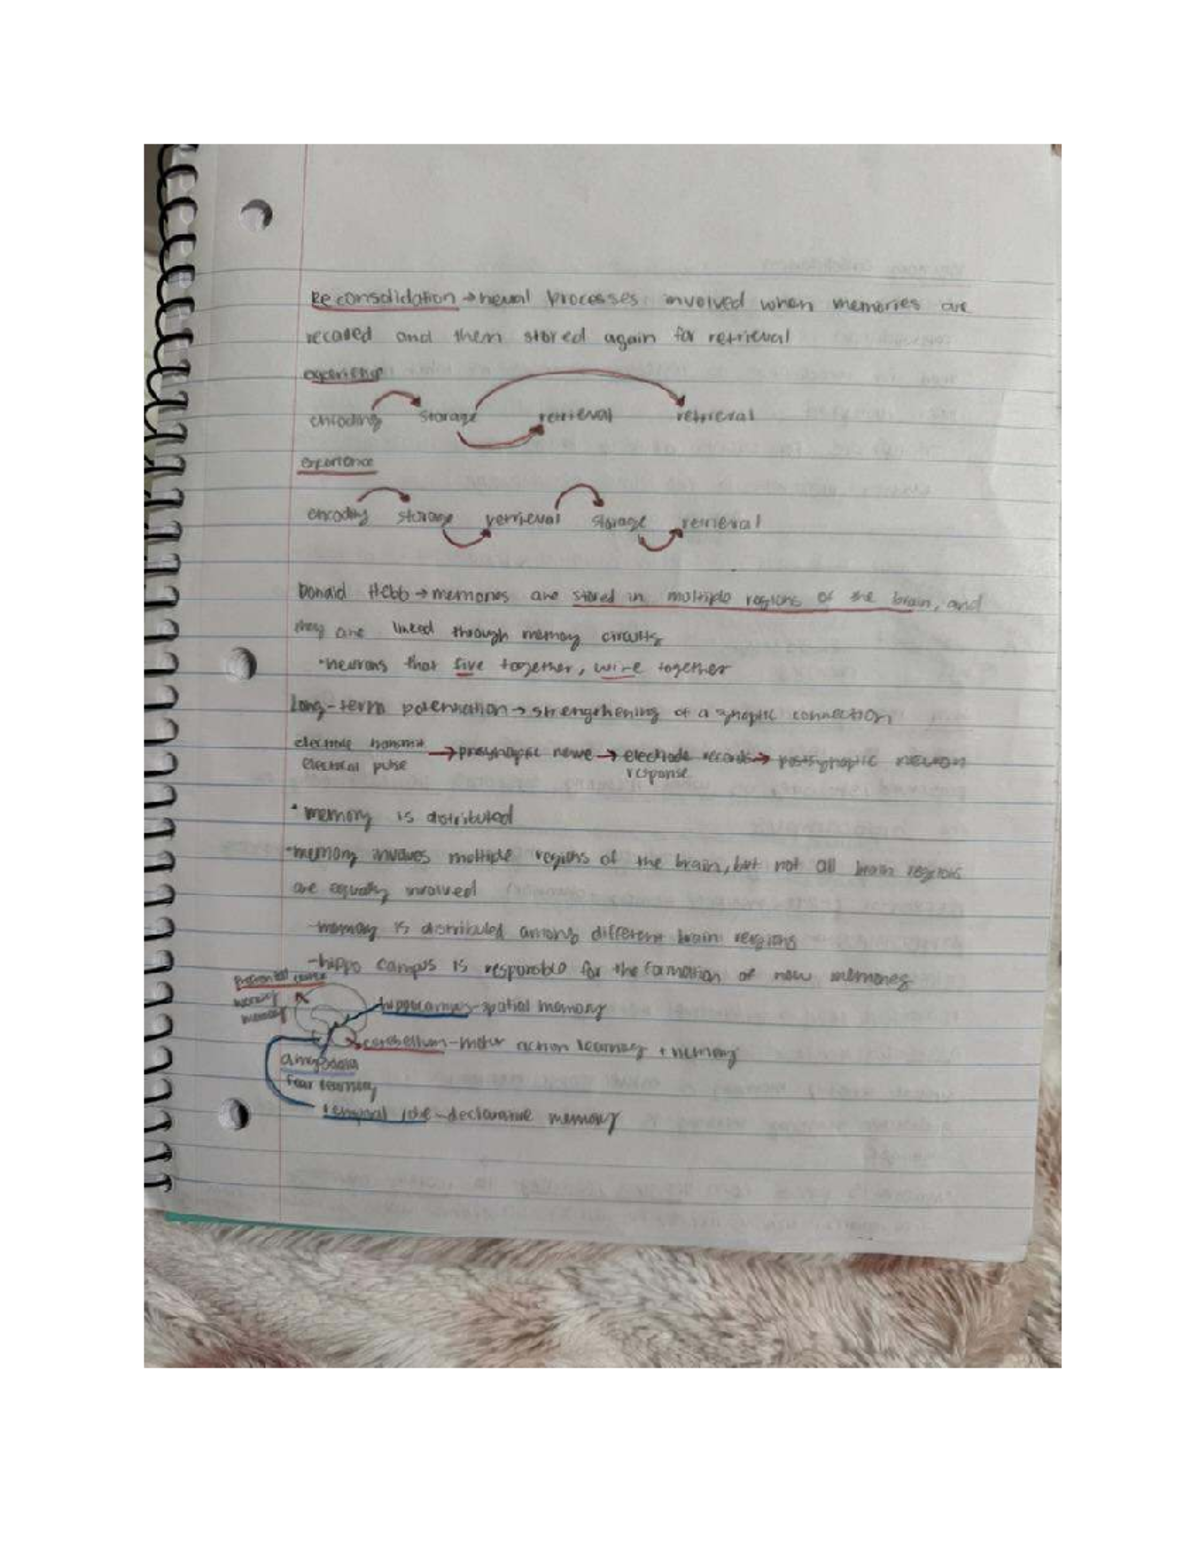 Reconsolidation → neual processes involved when memories are
recalled and them stored again for retrieval
experience
encoding storage retrieval retrieval
experience
encoding storage retrieval storage retrieval
Donald Hebb → memories are stored in multiple regions of the brain, and
they are linked through memory circuits
• neurons that five together, wire together
Long-term potentiation → strengthening of a synaptic connection
electrode transmit → presynaptic nerve → electrode records → postsynaptic neuron
electrical pulse response
• memory is distributed
• memory involves multiple regions of the brain, but not all brain regions
are equally involved
- memory is distributed among different brain regions
- hippo campus is responsible for the formation of new memories
prefrontal cortex
working
memory
hippocampus - spatial memory
cerebellum - motor action learning + memory
amygdala
fear learning
temporal lobe - declarative memory